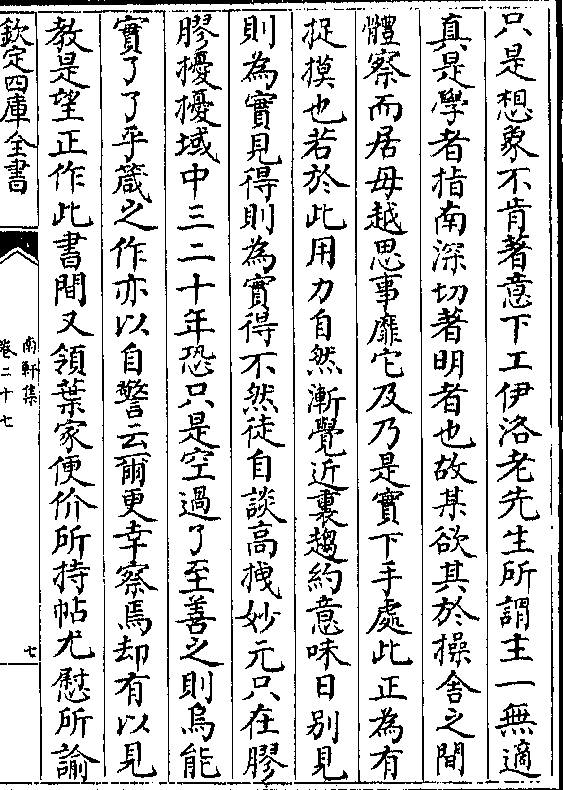 只是想象不肯著意下工伊洛老先生所謂主一無適
真是學者指南深切著明者也故某欲其於操舍之間
體察而居毋越思事靡它及乃是實下手處此正為有
捉摸也若於此用力自然漸覺近裏趨約意味日別見
則為實見得則為實得不然徒自談高拽妙元只在膠
膠擾擾域中三二十年恐只是空過了至善之則烏能
實了了乎箴之作亦以自警云爾更幸察焉却有以見
教是望正作此書間又領葉家便价所持帖尤慰所諭
欽定四庫全書
南軒集
卷二十七
七